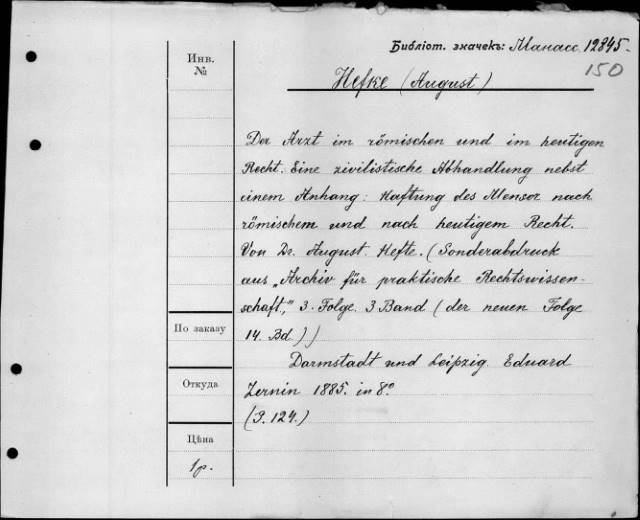 Библіот. значекъ: Манасс. 12845.
150
Инв.
№
Hefke (August)
Der Arzt im römischen und im heutigen
Recht. Eine zivilistische Abhandlung nebst
einem Anhang: Haftung des Mensor nach
römischem und nach heutigem Recht.
Von Dr. August Hefke. (Sonderabdruck
aus „Archiv für praktische Rechtswissen-
schaft," 3. Folge. 3 Band (der neuen Folge
14. Bd.))
Darmstadt und Leipzig. Eduard
Zernin 1885. in 8°
(S. 124.)
По заказу
Откуда
Цѣна
1р.